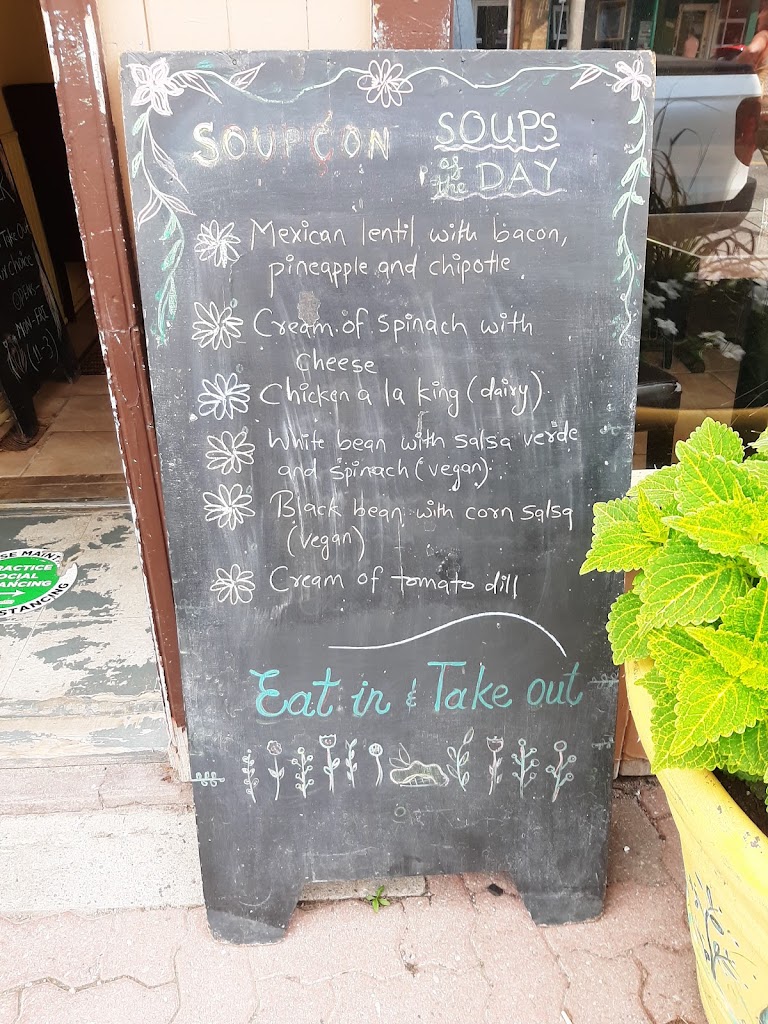 SOUPÇON
SOUPS
of the DAY
Mexican lentil with bacon,
pineapple and chipotle.
Cream of spinach with
cheese
Chicken a la king (dairy)
White bean with salsa verde
and spinach (vegan).
Black bean with corn salsa
(vegan)
Cream of tomato dill
Eat in & Take out
Take Out
MON-FRI
(11-3)
PRACTICE
SOCIAL
DISTANCING